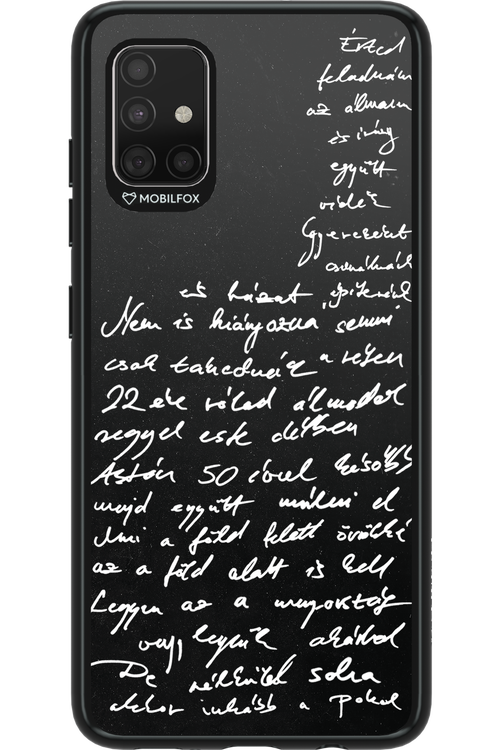 MOBILFOX
Érted
feladnám
az álmom
és irány
együtt
vidék
Gyerekeket
csinálnék
és házat építenék
Nem is hiányozna semmi
csak takednák a részen
22 éve rólad álmodok
reggel este délben
Aztán 50 évvel később
majd együtt múlni el
Ami a föld felett örökké
az a föld alatt is kell
Legyen az a mennyország
vagy legyünk akárhol
De nélküled soha
akkor inkább a pokol